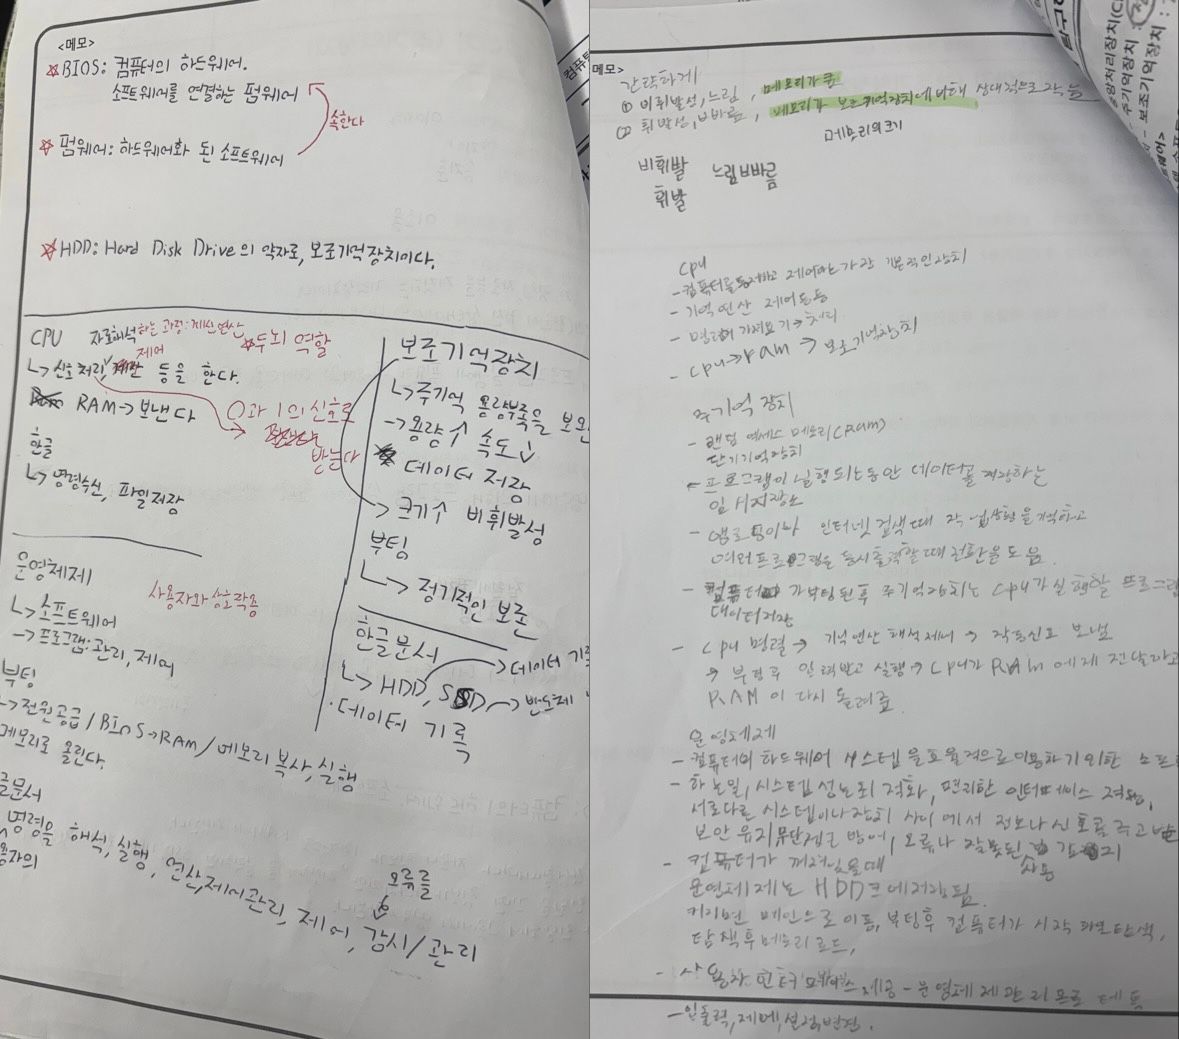 <메모>
☆BIOS: 컴퓨터의 하드웨어.
소프트웨어를 연결하는 펌웨어
속한다
☆ 펌웨어: 하드웨어화 된 소프트웨어
☆HDD: Hard Disk Drive의 약자로, 보조기억장치이다.
CPU 자료해석 하는 과정: 계산연산
☆두뇌 역할
제어
↳신호처리, 등을 한다.
RAM→보낸다
0과 1의 신호로
받는다
한글
↳명령수신, 파일저장
보조기억장치
↳주기억 용량부족을 보완
→용량↑ 속도↓
데이터 저장
→크기↑ 비휘발성
부팅
↳정기적인 보존
한글문서
↳HDD, SSD →데이터 기록
→반도체
데이터 기록
운영체제
사용자와 상호작용
↳소프트웨어
→프로그램: 관리, 제어
부팅
→전원공급/BIOS→RAM/메모리 복사, 실행
메모리로 올린다.
글문서
명령을 해석, 실행, 연산,제어관리, 제어, 감시/관리
용자의
오류를
메모>
간략하게
① 비휘발성, 느림, 메모리가 큼
② 휘발성, 빠름, 메모리가 보조기억장치에 비해 상대적으로 작음
메모리의 크기
비휘발 느림 빠름
휘발
cpu
-컴퓨터를 통제하고 제어하는 가장 기본적인 장치
-기억 연산 제어 등등
-명령어 가져오기→처리
- cpu→ram→보조기억장치
주기억 장치
- 랜덤 엑세스 메모리(ram)
단기기억장치
-프로그램이 실행되는 동안 데이터를 저장하는
임시저장소
- 앱로딩이나 인터넷 검색 때 작업상황을 기억하고
여러 프로그램을 동시출력할 때 전환을 도움.
- 컴퓨터가 부팅된 후 주기억장치는 cpu가 실행할 프로그램
데이터저장
- cpu 명령→ 기억연산 해석 제어 → 작동신호 보냄
→ 부팅후 입력받고 실행→cpu가 RAM에게 전달하고
RAM이 다시 돌려줌
운영체제
-컴퓨터의 하드웨어 시스템을 효율적으로 이용하기 위한 소프트
- 하는일, 시스템 성능최적화, 편리한 인터페이스 제공,
서로다른 시스템이나 장치 사이에서 정보나 신호를 주고받
보안 유지 무단접근 방어, 오류나 잘못된 감지
사용
- 컴퓨터가 꺼져있을때
운영체제는 HDD크에저장됨.
커지면 메인으로 이동, 부팅후 컴퓨터가 시작 되면 탐색,
탐색후 메모리 로드,
- 사용자 인터페이스 제공 - 운영체제 관리
-입출력, 제어, 설정변경.
중앙처리장치(C
- 주기억장치 :
- 보조기억장치 :